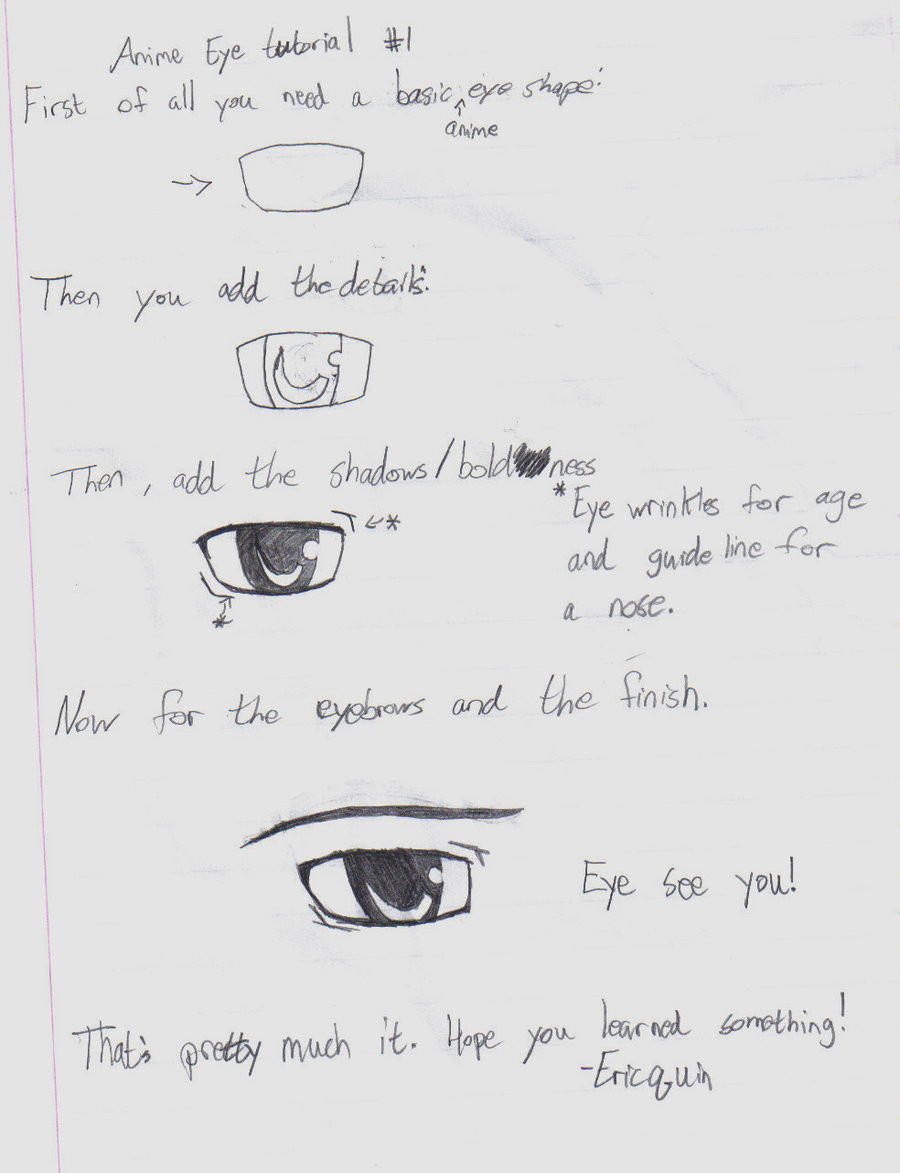 Anime Eye tutorial #1
First of all you need a basic eye shape:
anime
Then you add the details:
Then, add the shadows/boldness
*Eye wrinkles for age
and guide line for
a nose.
←*
*
Now for the eyebrows and the finish.
Eye see you!
That's pretty much it. Hope you learned something!
-Ericquin